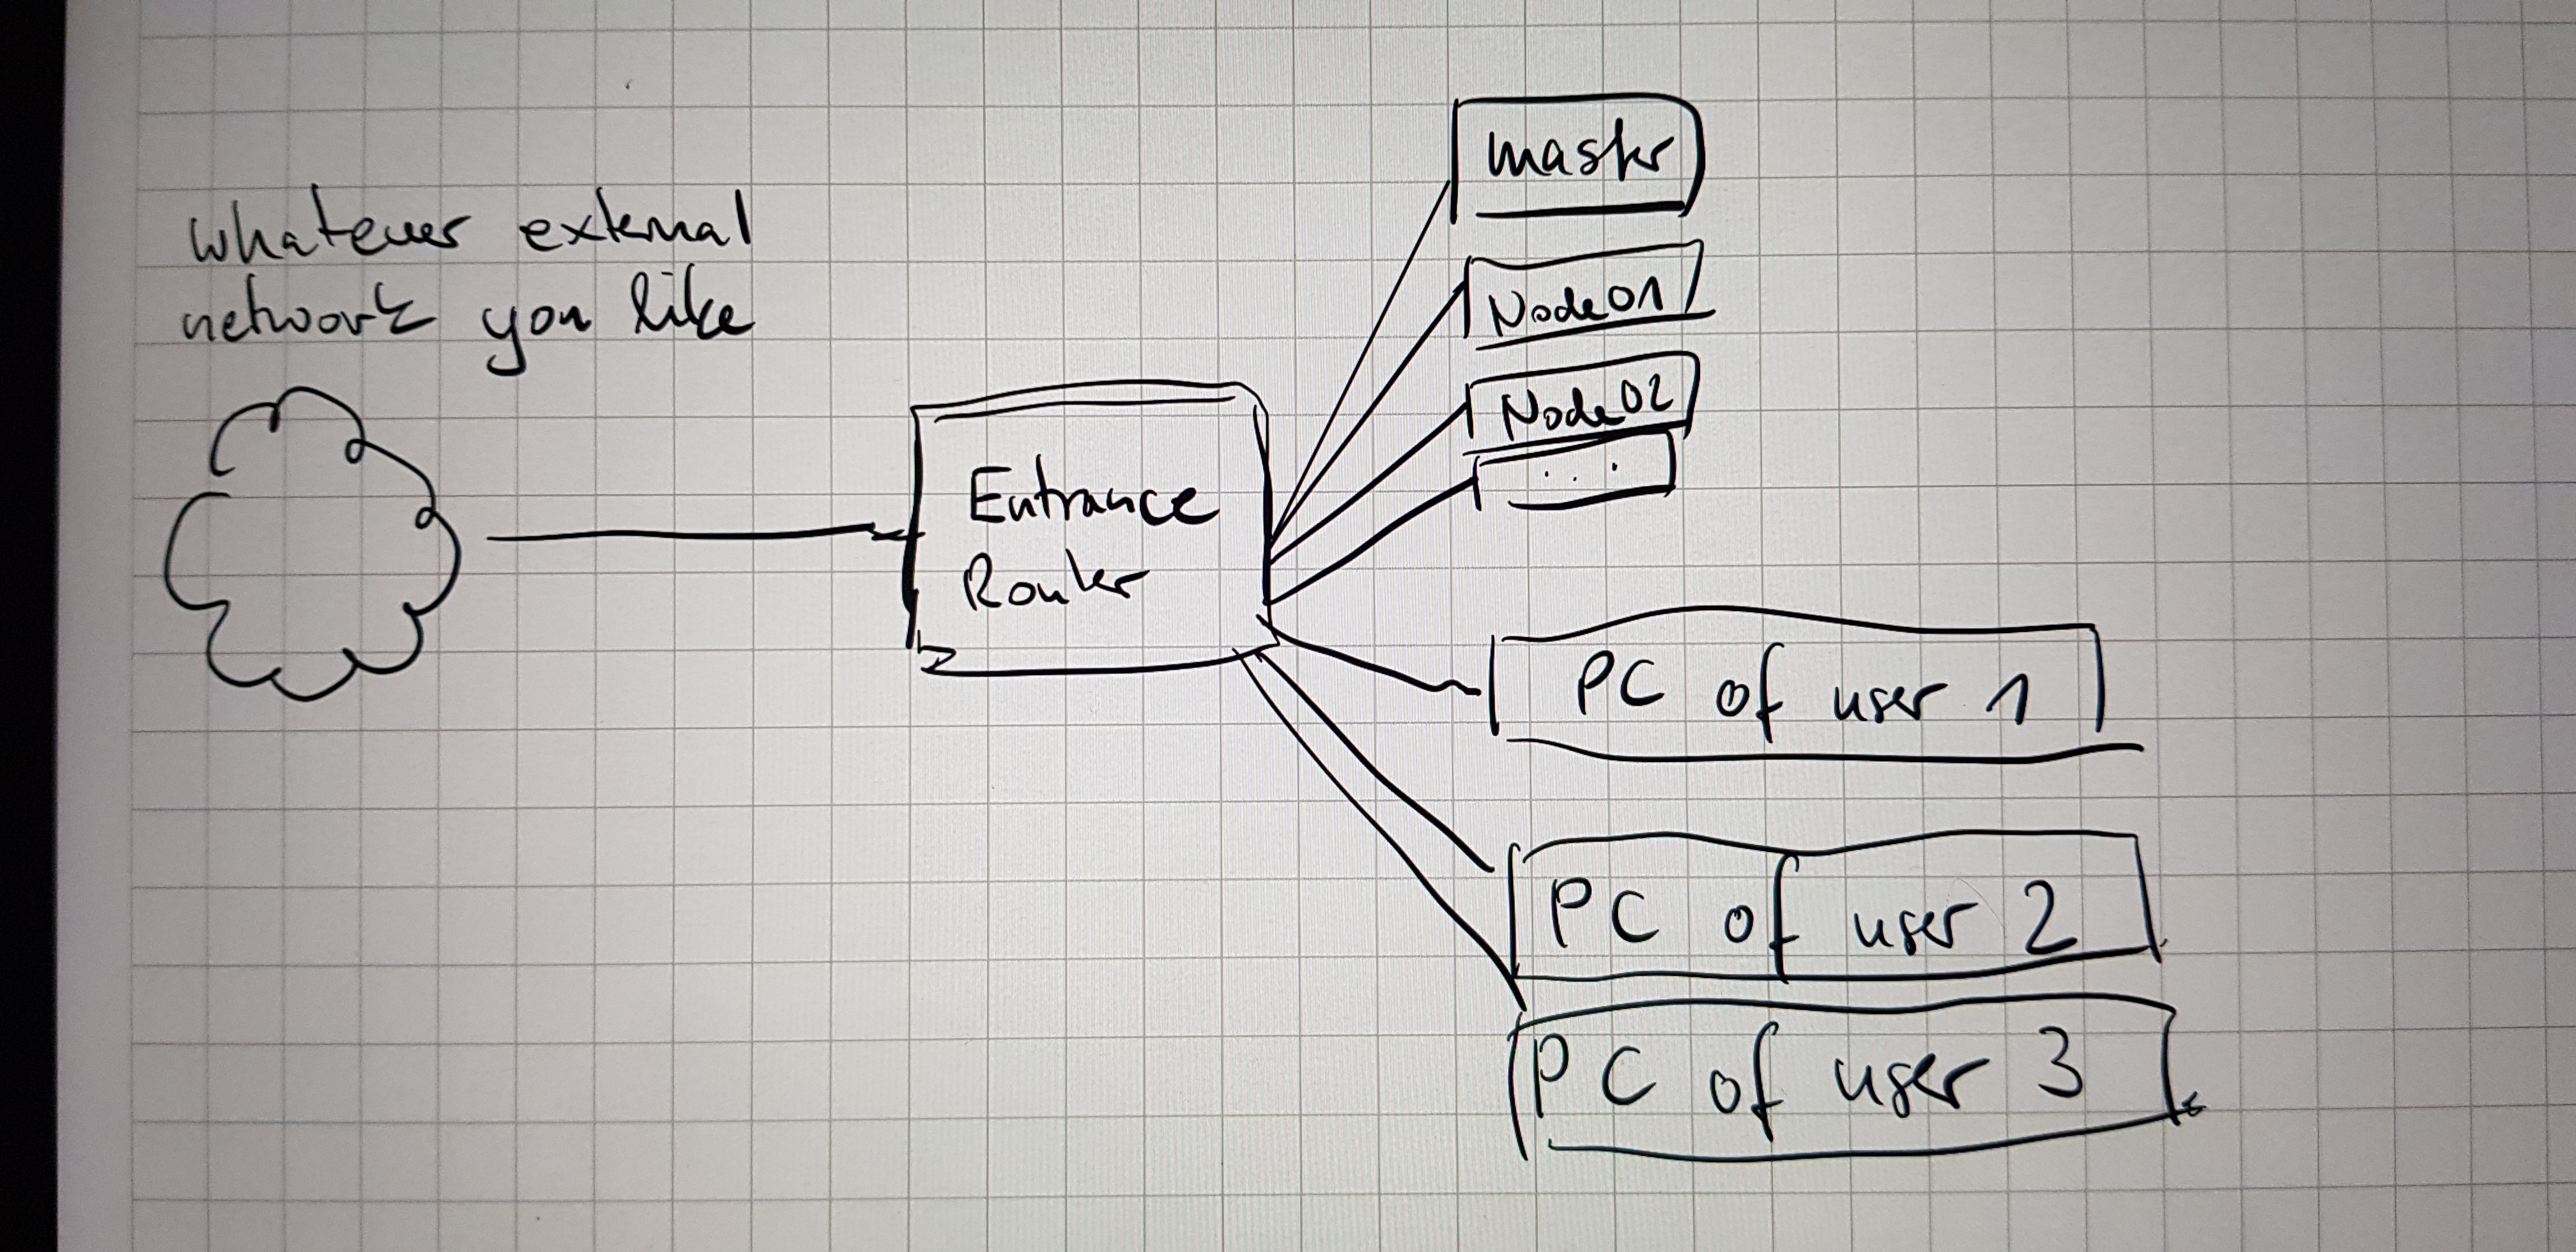 whatever external
network you like
master
Node01
Node02
...
Entrance
Router
PC of user 1
PC of user 2
PC of user 3